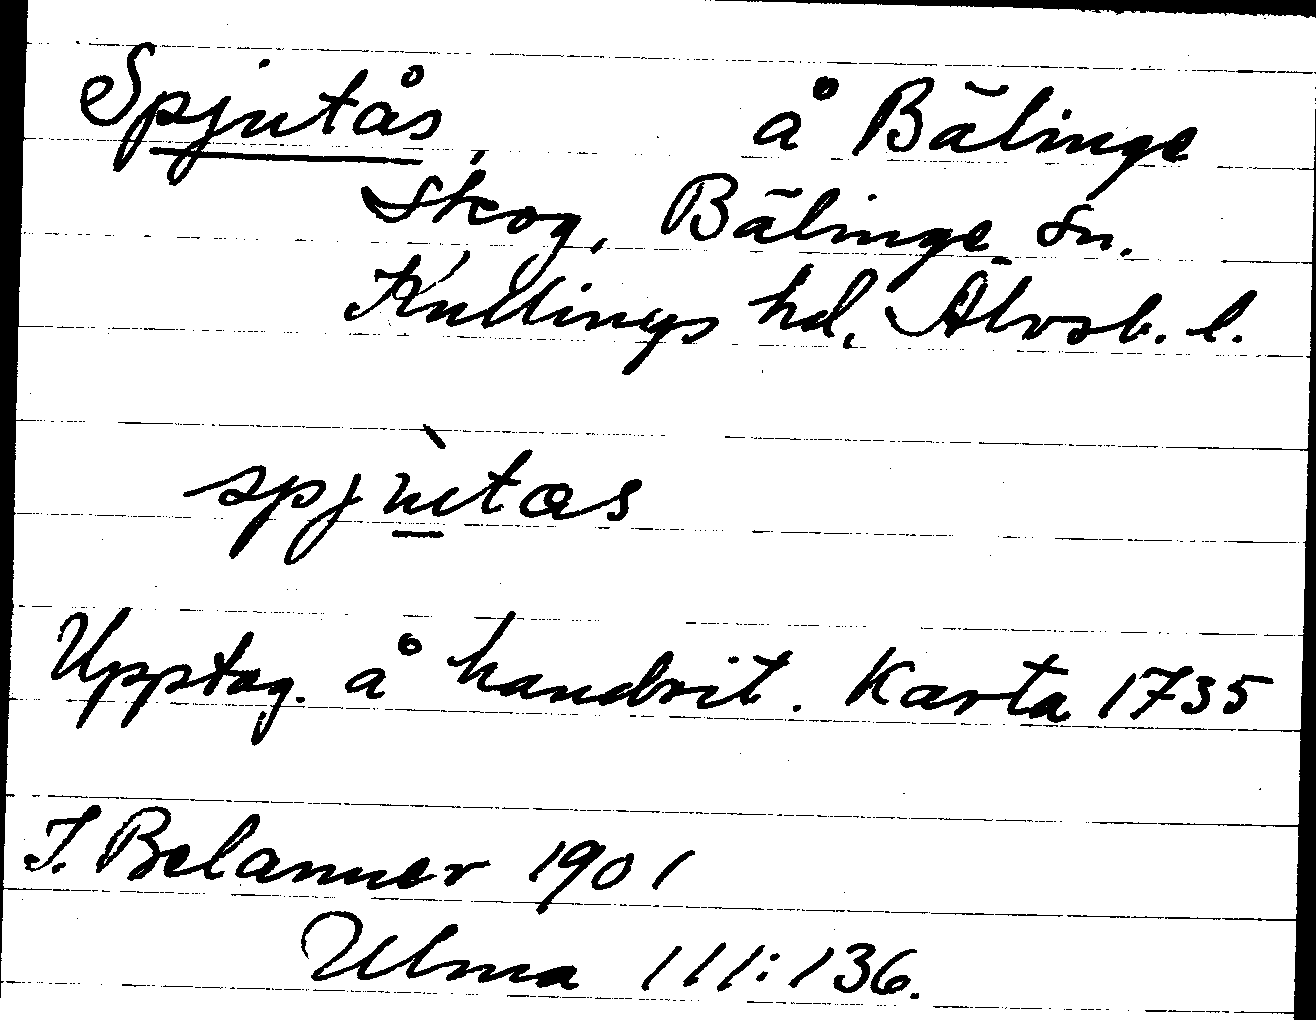 Spjutås, å Bälinge
Skog, Bälinge sn.
Kullings hd, Älvsb. l.
spjùtas
Upptag. å handrit. Karta 1735
J. Belanner 1901
Ulma 111:136.